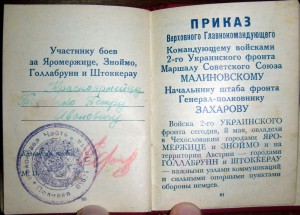 Участнику боев
за Яромержице, Зноймо,
Голлабрунн и Штоккерау
Красноармейцу
Ивановичу
ПРИКАЗ
Верховного Главнокомандующего
Командующему войсками
2-го Украинского фронта
Маршалу Советского Союза
МАЛИНОВСКОМУ
Начальнику штаба фронта
Генерал-полковнику
ЗАХАРОВУ
Войска 2-го УКРАИНСКОГО
фронта сегодня, 8 мая, овладели
в Чехословакии городами ЯРО-
МЕРЖИЦЕ и ЗНОЙМО и на
территории Австрии — городами
ГОЛЛАБРУНН и ШТОККЕРАУ
— важными узлами коммуникаций
и сильными опорными пунктами
обороны немцев.